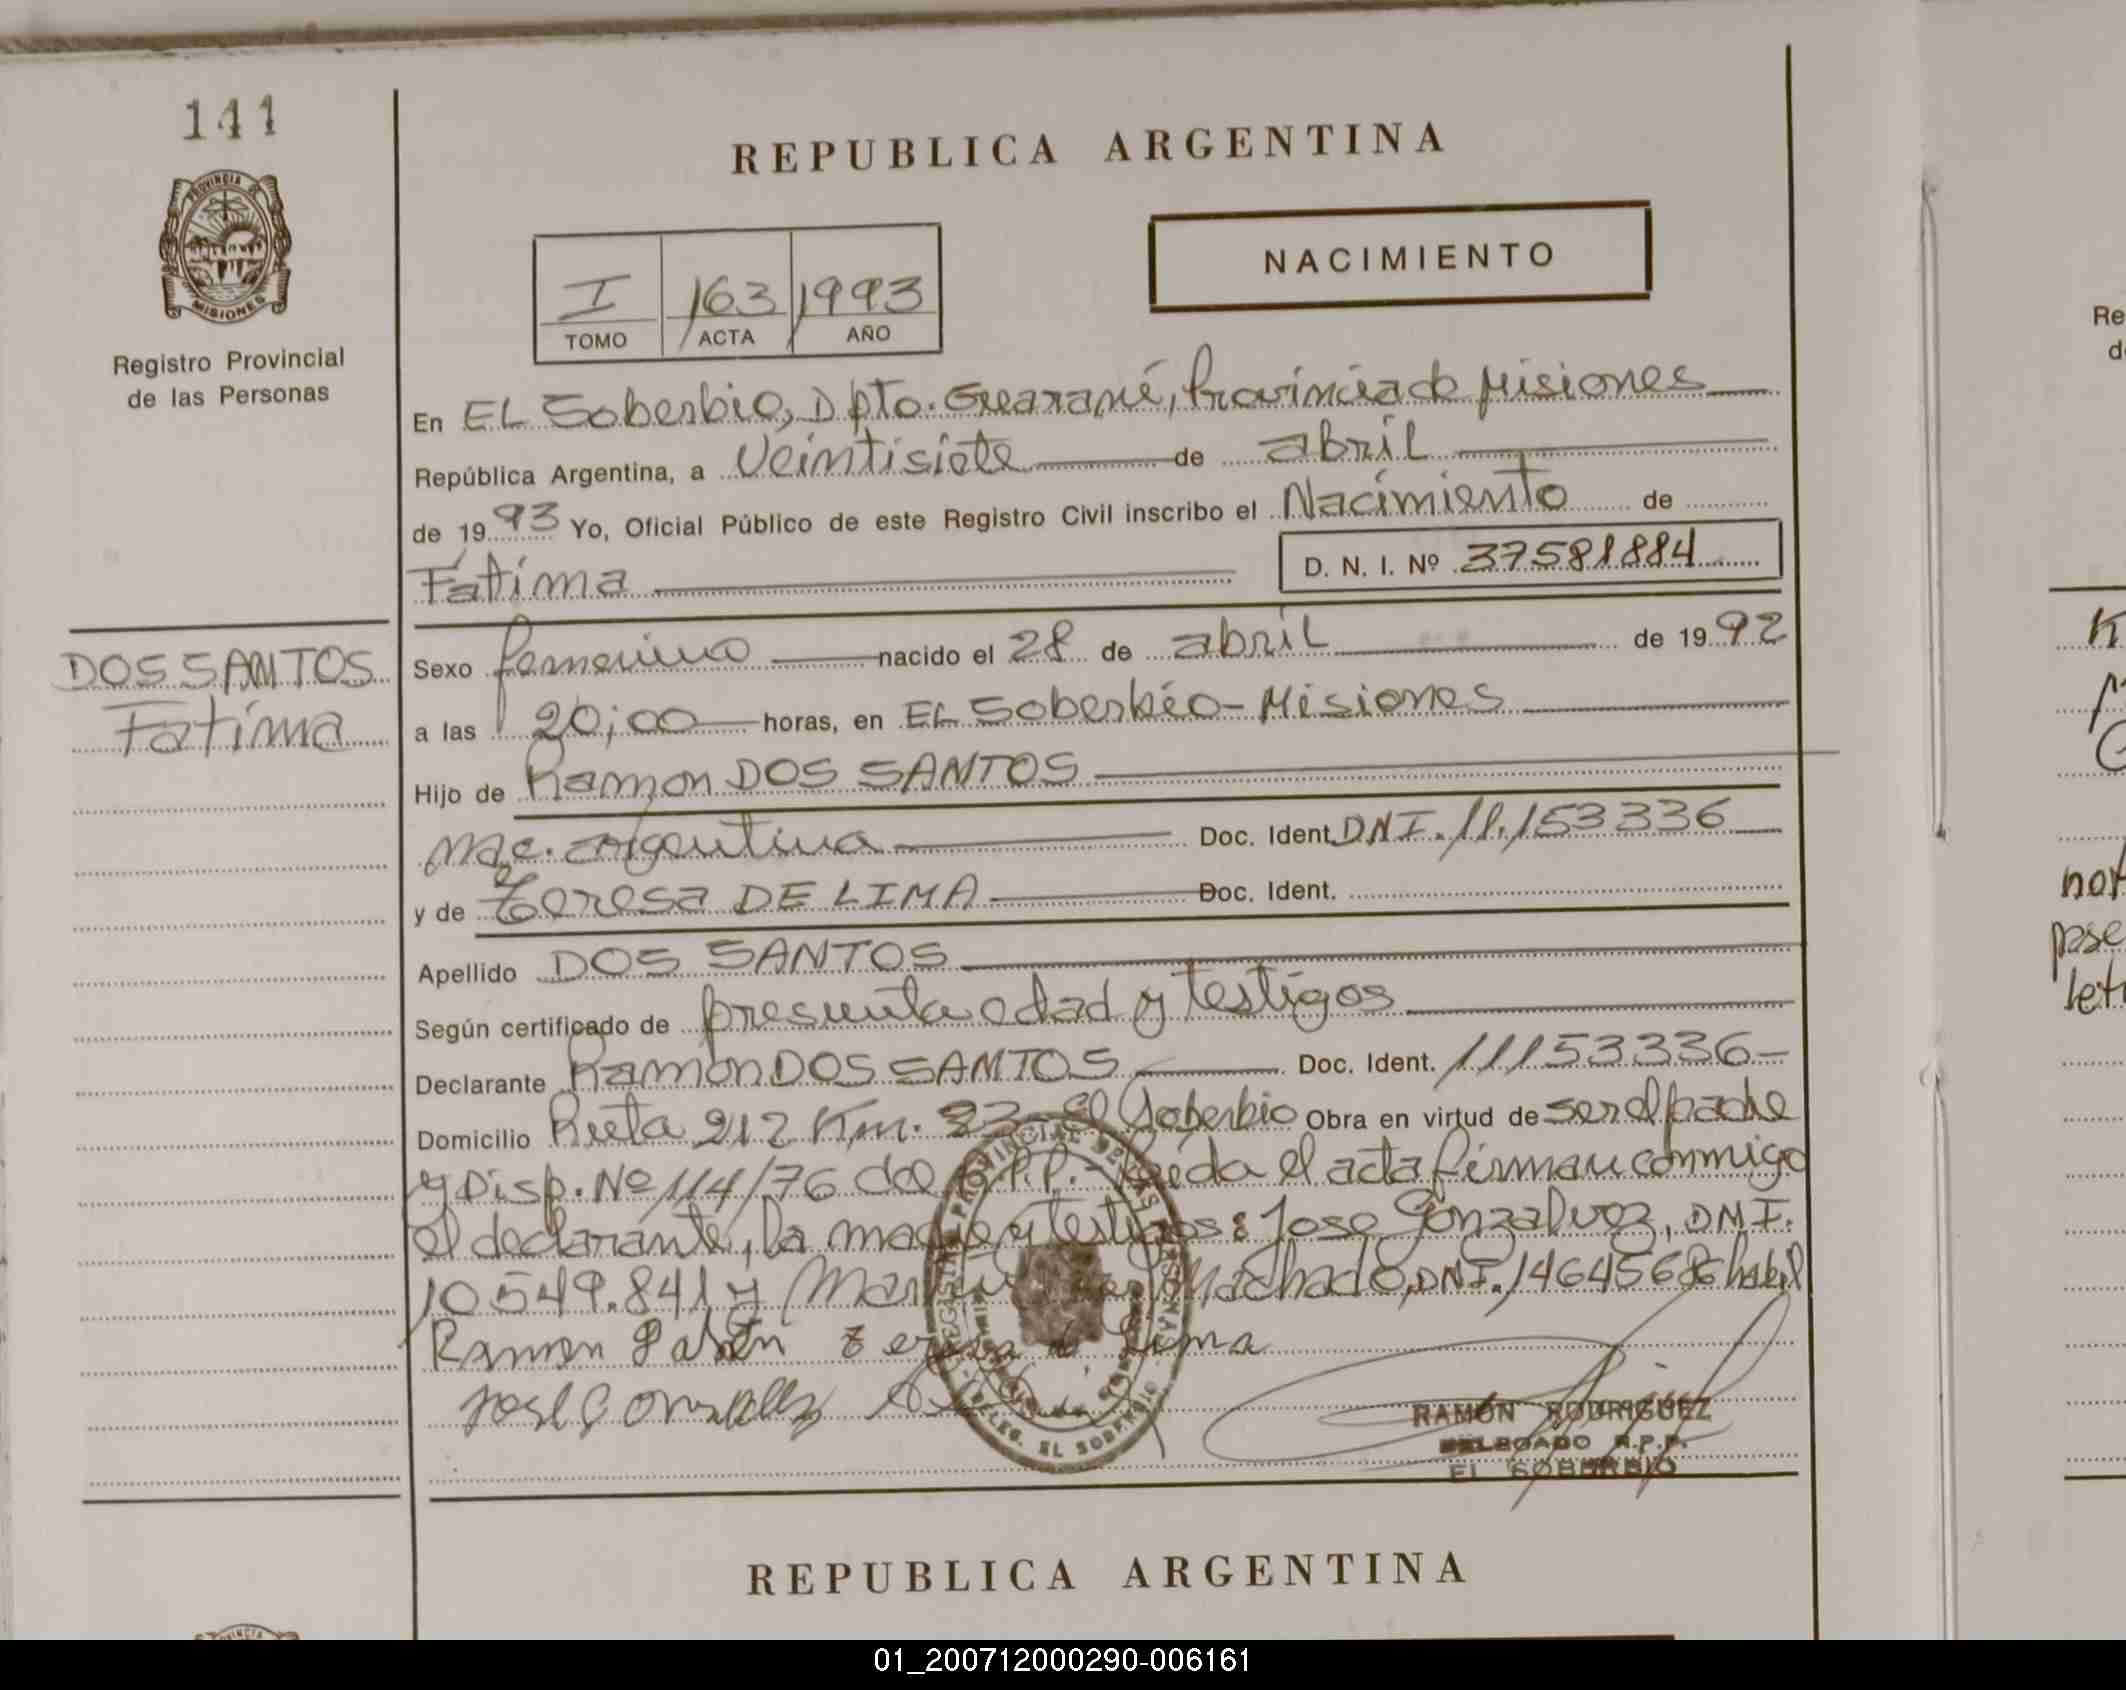 141
REPUBLICA ARGENTINA
PROVINCIA DE
MISIONES
NACIMIENTO
I 163 1993
TOMO ACTA AÑO
Registro Provincial
de las Personas
En EL Soberbio, Dpto. Guaraní, Provincia de Misiones
República Argentina, a Veintisiete de abril
de 1993 Yo, Oficial Público de este Registro Civil inscribo el Nacimiento de
Fatima D. N. I. Nº 37581884
DOS SANTOS
Fatima
Sexo femenino nacido el 28 de abril de 1992
a las 20;00 horas, en EL Soberbio - Misiones
Hijo de Ramon DOS SANTOS
Nac. argentina Doc. Ident. DNI. 11.153336
y de Teresa DE LIMA Doc. Ident.
Apellido DOS SANTOS
Según certificado de presunta edad y testigos
Declarante Ramon DOS SANTOS Doc. Ident. 11153336
Domicilio Ruta 212 Km. 23 El Soberbio Obra en virtud de ser el padre
y Disp. Nº 114/76 del R.P.P. - Leida el acta firman conmigo
el declarante, la madre y testigos: Jose Gonzalvez, DNI.
10549.841 y Machado, DNI. 14645686 habil
Ramon Teresa de Lima
Jose
RAMÓN RODRIGUEZ
DELEGADO R.P.P.
EL SOBERBIO
DELEG. EL SOBERBIO
REPUBLICA ARGENTINA
Re
d
nor
pase
let
01_200712000290-006161